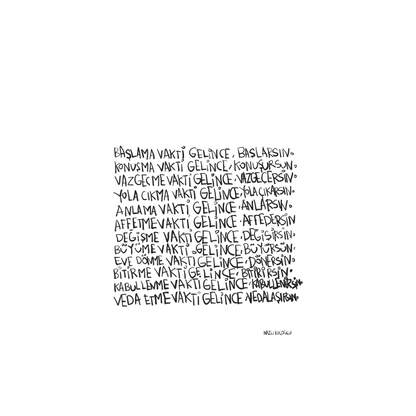 BAŞLAMA VAKTİ GELİNCE, BAŞLARSIN.
KONUŞMA VAKTİ GELİNCE, KONUŞURSUN.
VAZGEÇME VAKTİ GELİNCE, VAZGEÇERSİN.
YOLA ÇIKMA VAKTİ GELİNCE, YOLA ÇIKARSIN.
ANLAMA VAKTİ GELİNCE, ANLARSIN.
AFFETME VAKTİ GELİNCE, AFFEDERSİN
DEĞİŞME VAKTİ GELİNCE, DEĞİŞİRSİN.
BÜYÜME VAKTİ GELİNCE, BÜYÜRSÜN.
EVE DÖNME VAKTİ GELİNCE, DÖNERSİN.
BİTİRME VAKTİ GELİNCE, BİTİRİRSİN.
KABULLENME VAKTİ GELİNCE, KABULLENİRSİN.
VEDA ETME VAKTİ GELİNCE, VEDALAŞIRSIN.